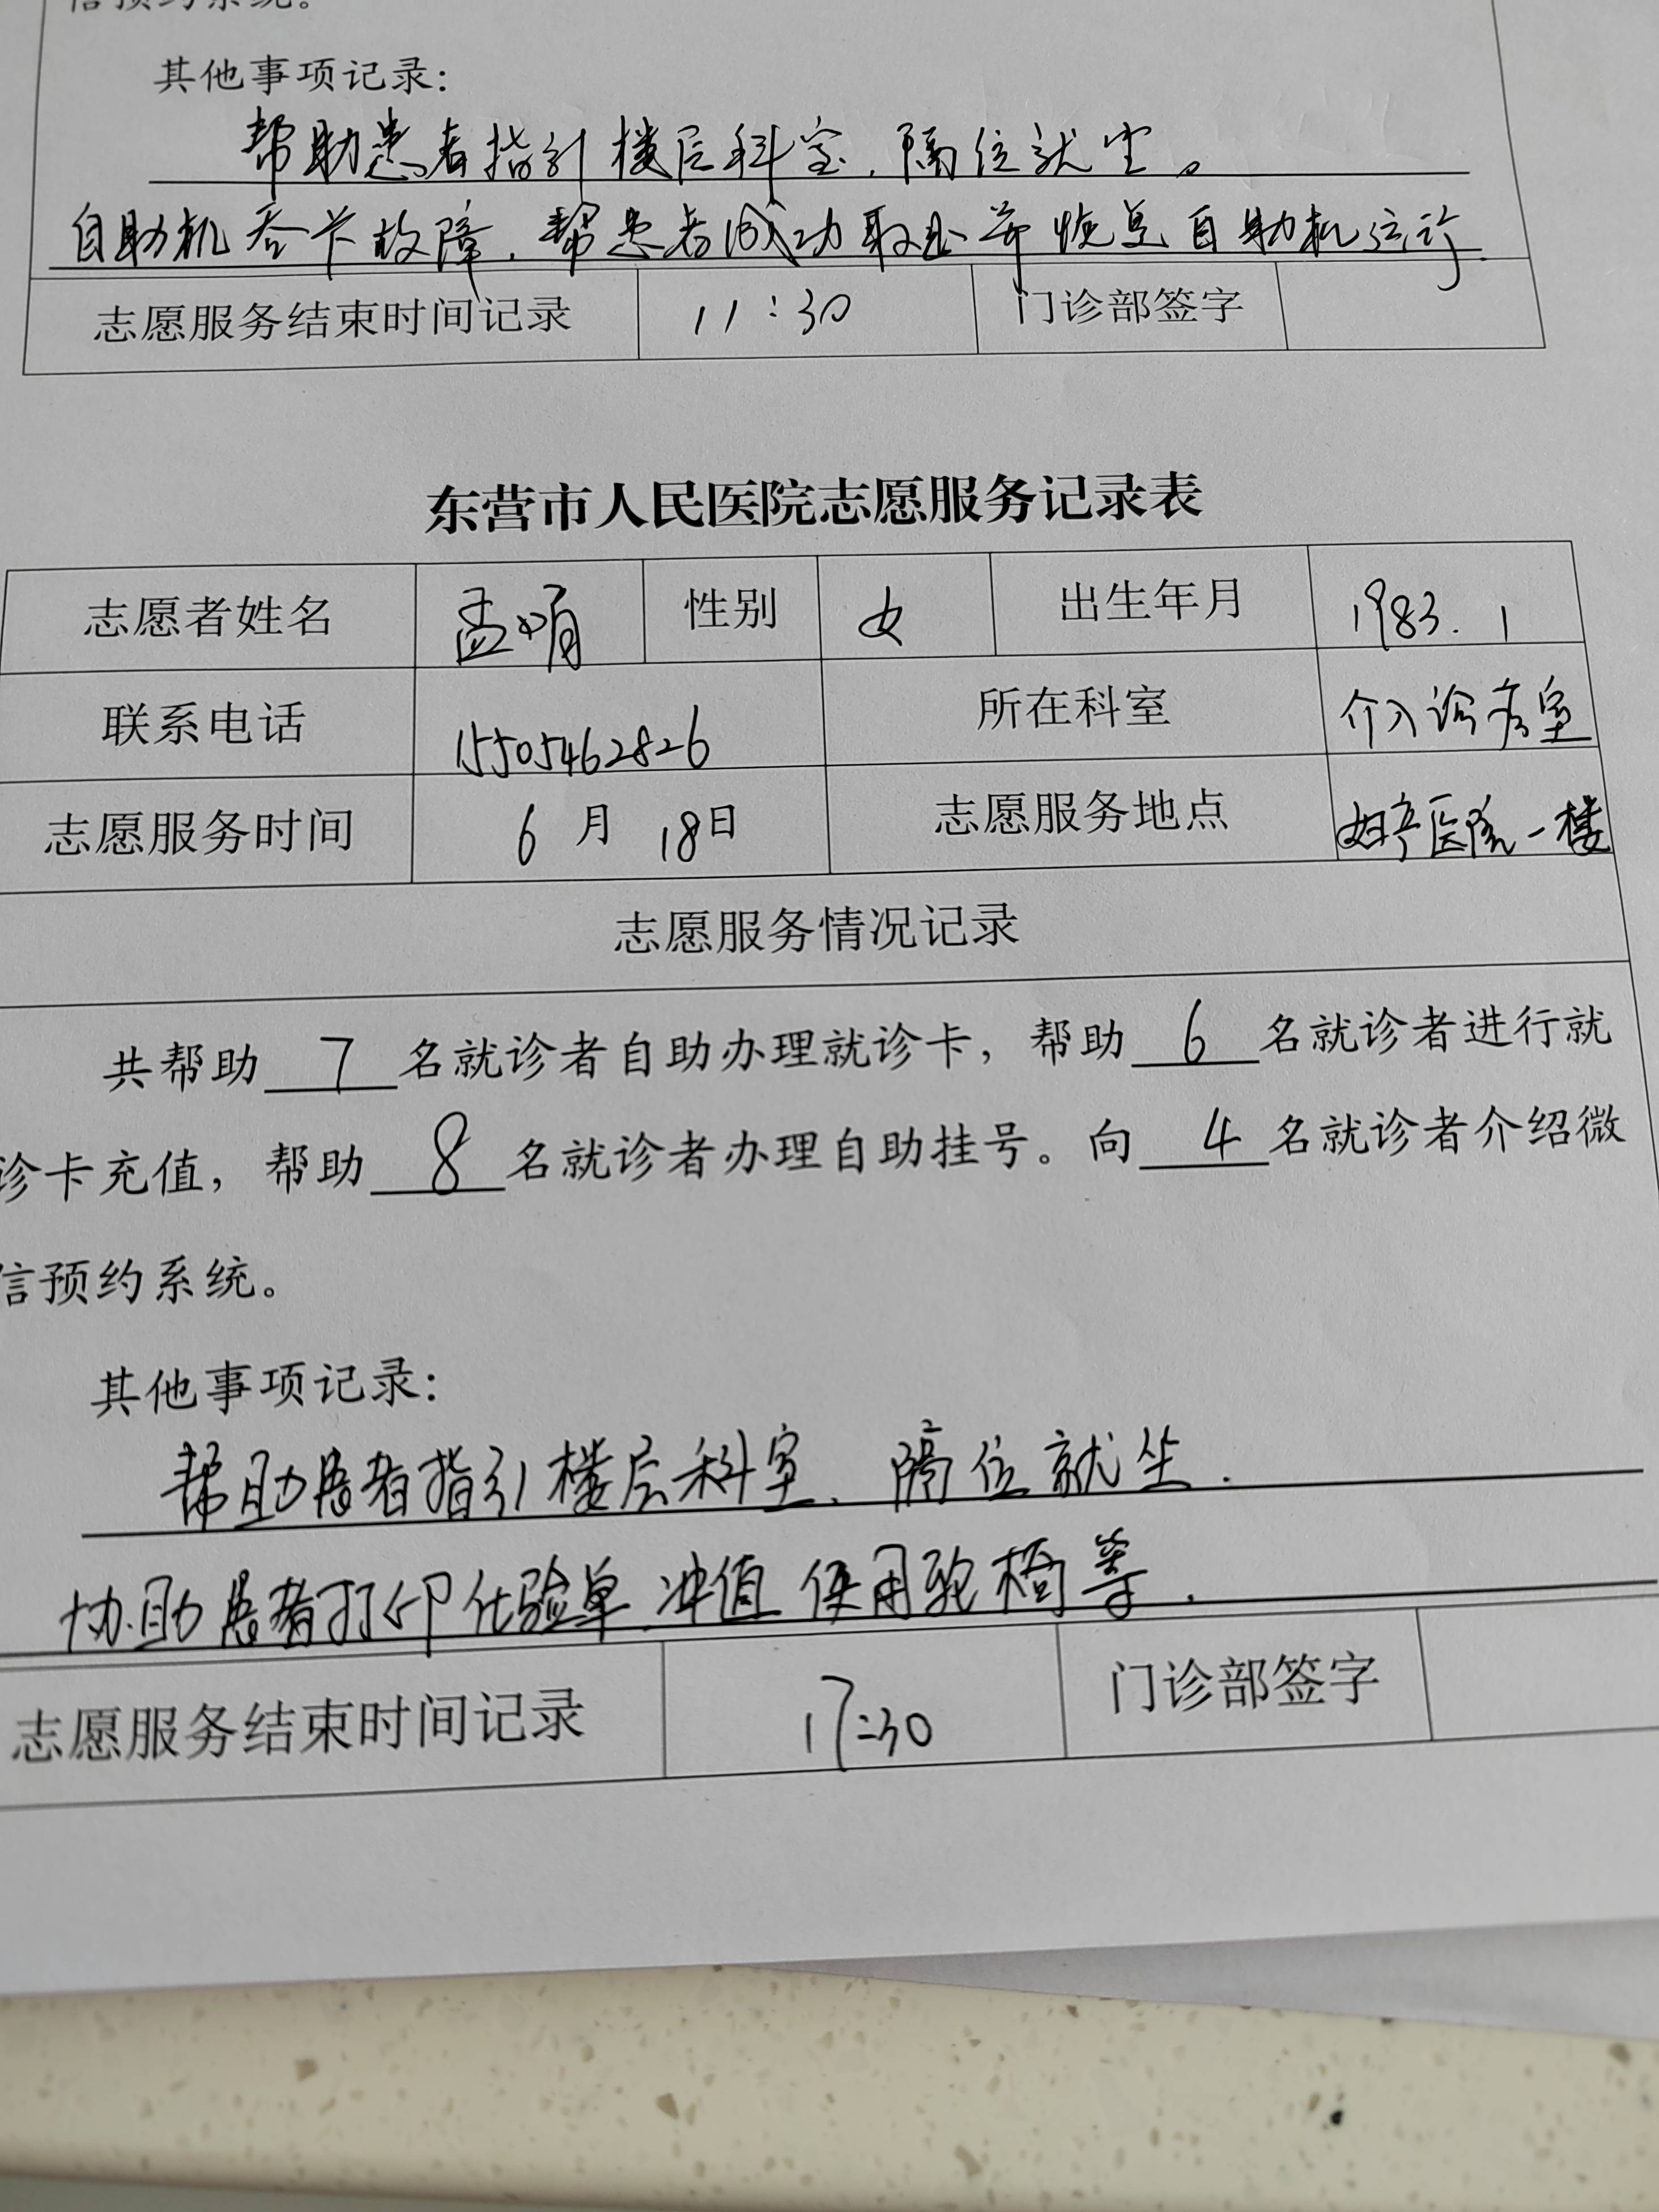 信预约系统。
其他事项记录:
帮助患者指引楼层科室,隔位就坐。
自助机吞卡故障,帮患者成功取出并恢复自助机运行.
志愿服务结束时间记录 11:30 门诊部签字
东营市人民医院志愿服务记录表
志愿者姓名 孟娟 性别 女 出生年月 1983.1
联系电话 15505462826 所在科室 介入诊疗室
志愿服务时间 6月18日 志愿服务地点 妇产医院一楼
志愿服务情况记录
共帮助 7 名就诊者自助办理就诊卡,帮助 6 名就诊者进行就
诊卡充值,帮助 8 名就诊者办理自助挂号。向 4 名就诊者介绍微
信预约系统。
其他事项记录:
帮助患者指引楼层科室、隔位就坐.
协助患者打印化验单.冲值 使用轮椅等.
志愿服务结束时间记录 17:30 门诊部签字